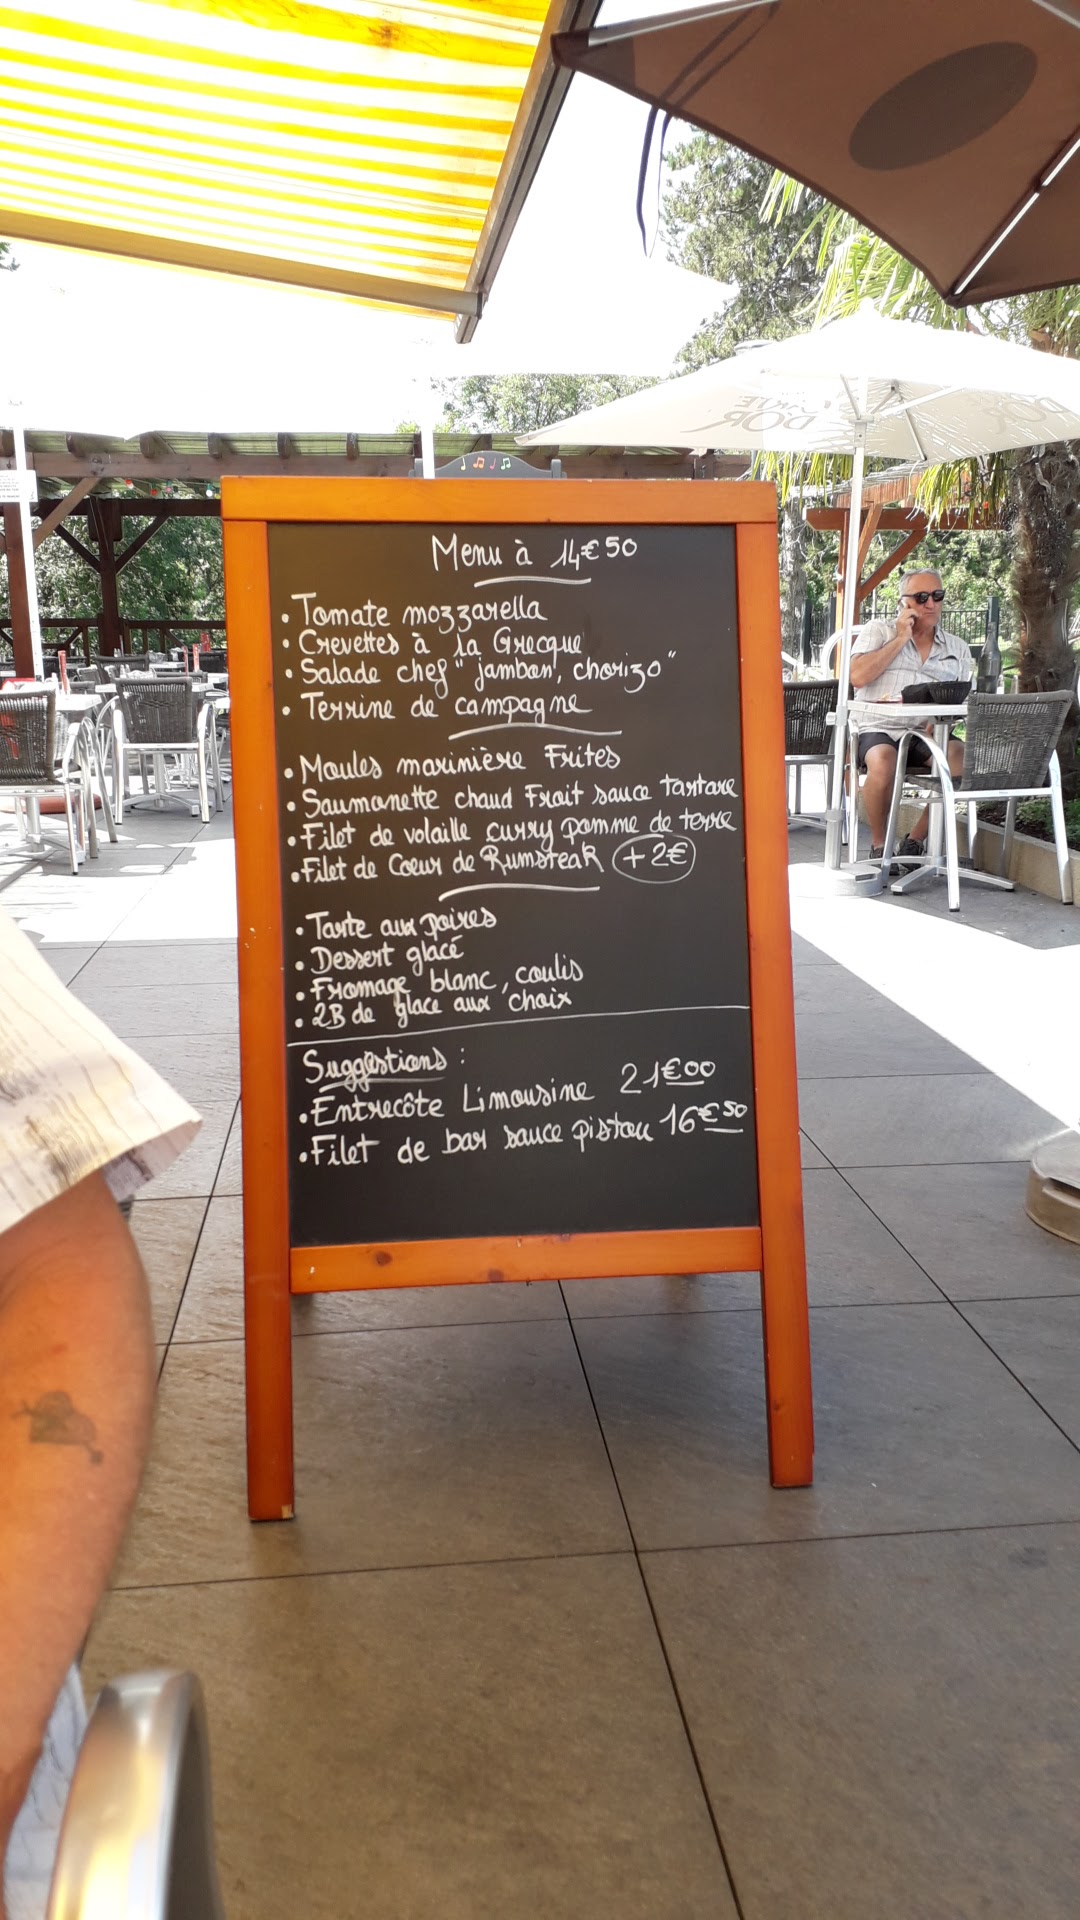 Menu à 14€50
• Tomate mozzarella
• Crevettes à la Grecque
• Salade chef "jambon, chorizo"
• Terrine de campagne
• Moules marinière Frites
• Saumonette chaud Froit sauce tartare
• Filet de volaille curry pomme de terre
• Filet de Coeur de Rumsteak +2€
• Tarte aux poires
• Dessert glacé
• Fromage blanc, coulis
• 2B de glace aux choix
Suggestions :
• Entrecôte Limousine 21€00
• Filet de bar sauce pistou 16€50
D'OR